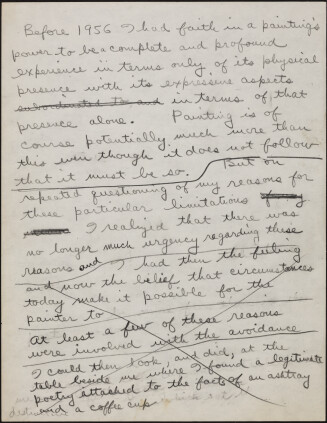 Before 1956 I had faith in a painting's
power to be a complete and profound
experience in terms only of its physical
presence with its expressive aspects
subordinated to and in terms of that
presence alone. Painting is of
course potentially much more than
this even though it does not follow
that it must be so. But on
repeated questioning of my reasons for
these particular limitations
I realized that there was
no longer much urgency regarding these
reasons and I had then the feeling
and now the belief that circumstances
today make it possible for the
painter to
At least a few of these reasons
were involved with the avoidance
I could then look, and did, at the
table beside me where I found a legitimate
poetry attached to the facts of an ashtray
and a coffee cup